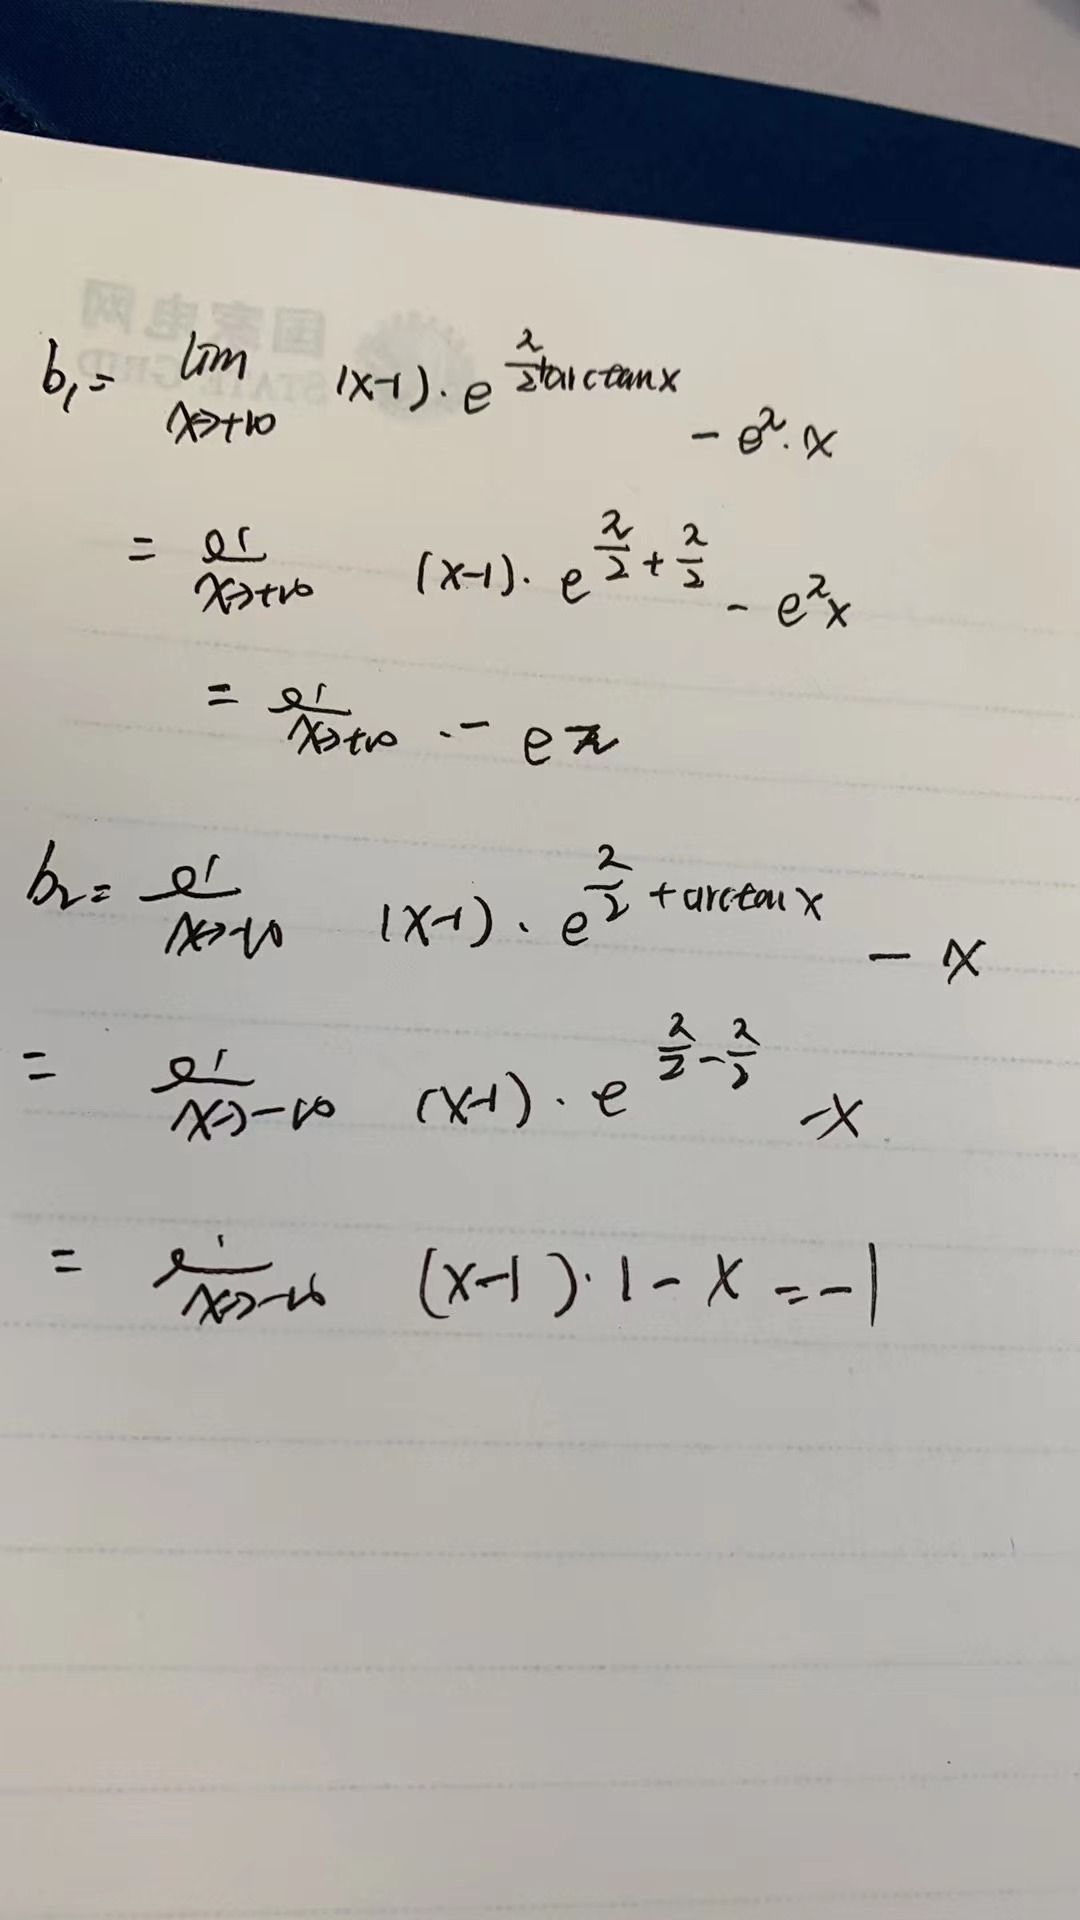 国家电网
STATE GRID
b₁ = lim x→+∞ (x-1)·e^(π/2+arctanx) - e^π·x
= lim x→+∞ (x-1)·e^(π/2+π/2) - e^π x
= lim x→+∞ - e^π
b₂ = lim x→-∞ (x-1)·e^(π/2+arctanx) - x
= lim x→-∞ (x-1)·e^(π/2-π/2) - x
= lim x→-∞ (x-1)·1-x = -1